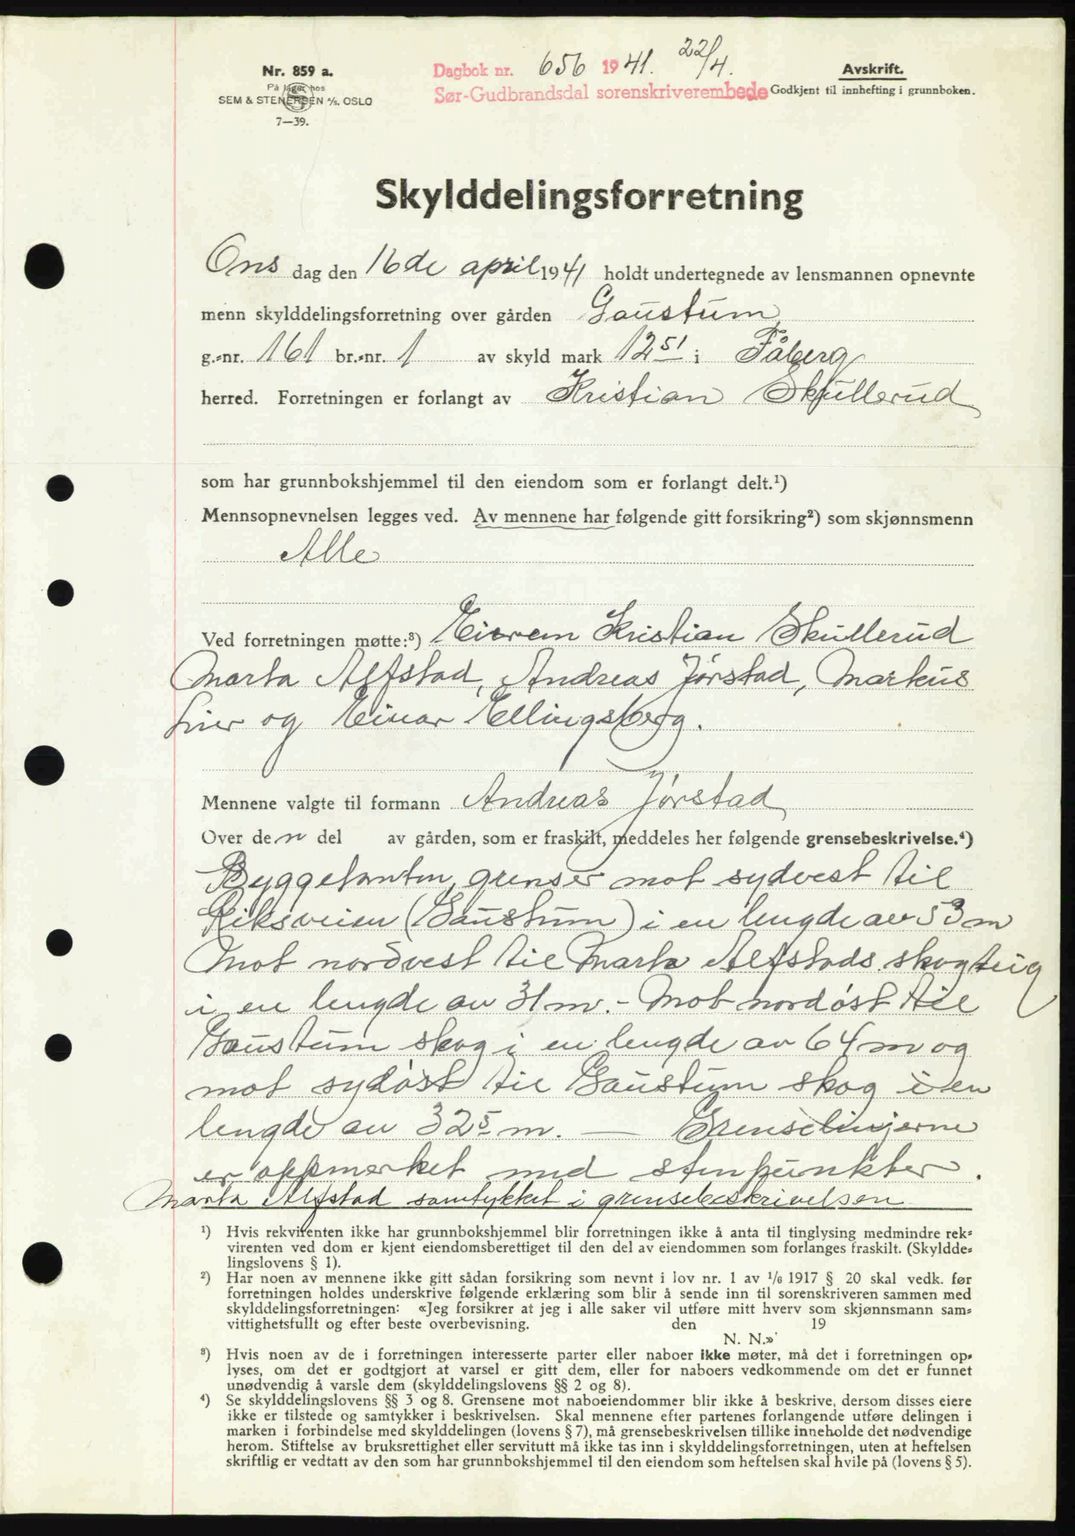 Nr. 859 a.
På lager hos
SEM & STENERSEN A/S. OSLO
7—39.
Dagbok nr. 656 1941. 22/4.
Sør-Gudbrandsdal sorenskriverembede
Avskrift.
Godkjent til innhefting i grunnboken.
Skylddelingsforretning
Ons dag den 16de april 1941 holdt undertegnede av lensmannen opnevnte
menn skylddelingsforretning over gården Gaustum
g.-nr. 161 br.-nr. 1 av skyld mark 12 51 i Fåberg
herred. Forretningen er forlangt av Kristian Skullerud
som har grunnbokshjemmel til den eiendom som er forlangt delt.¹)
Mennsopnevnelsen legges ved. Av mennene har følgende gitt forsikring²) som skjønnsmenn
Alle
Ved forretningen møtte:³) Eieren Kristian Skullerud
Marta Alfstad, Andreas Jørstad, Markus
Lier og Einar Ellingsberg.
Mennene valgte til formann Andreas Jørstad
Over den del av gården, som er fraskilt, meddeles her følgende grensebeskrivelse.⁴)
Byggetomten, grenser mot sydvest til
Riksveien (Gaustum) i en lengde av 53 m
Mot nordvest til Marta Alfstads skogteig
i en lengde av 31 m. - Mot nordøst til
Gaustum skog i en lengde av 64 m og
mot sydøst til Gaustum skog i en
lengde av 32 5 m. — Grenselinjerne
er oppmerket med stenpunkter.
Marta Alfstad samtykket i grensebeskrivelsen
¹) Hvis rekvirenten ikke har grunnbokshjemmel blir forretningen ikke å anta til tinglysing medmindre rek-
virenten ved dom er kjent eiendomsberettiget til den del av eiendommen som forlanges fraskilt. (Skyldde-
lingslovens § 1).
²) Har noen av mennene ikke gitt sådan forsikring som nevnt i lov nr. 1 av 1/6 1917 § 20 skal vedk. før
forretningen holdes underskrive følgende erklæring som blir å sende inn til sorenskriveren sammen med
skylddelingsforretningen: «Jeg forsikrer at jeg i alle saker vil utføre mitt hverv som skjønnsmann sam-
vittighetsfullt og efter beste overbevisning. den 19
N. N.»
³) Hvis noen av de i forretningen interesserte parter eller naboer ikke møter, må det i forretningen op-
lyses, om det er godtgjort at varsel er gitt dem, eller for naboers vedkommende om det er funnet
unødvendig å varsle dem (skylddelingslovens §§ 2 og 8).
⁴) Se skylddelingslovens §§ 3 og 8. Grensene mot naboeiendommer blir ikke å beskrive, dersom disses eiere
ikke er tilstede og samtykker i beskrivelsen. Skal mennene efter partenes forlangende utføre delingen i
marken i forbindelse med skylddelingen (lovens § 7), må grensebeskrivelsen tillike inneholde det nødvendige
herom. Stiftelse av bruksrettighet eller servitutt må ikke tas inn i skylddelingsforretningen, uten at heftelsen
skriftlig er vedtatt av den som har grunnbokshjemmel til den eiendom som heftelsen skal hvile på (lovens § 5).